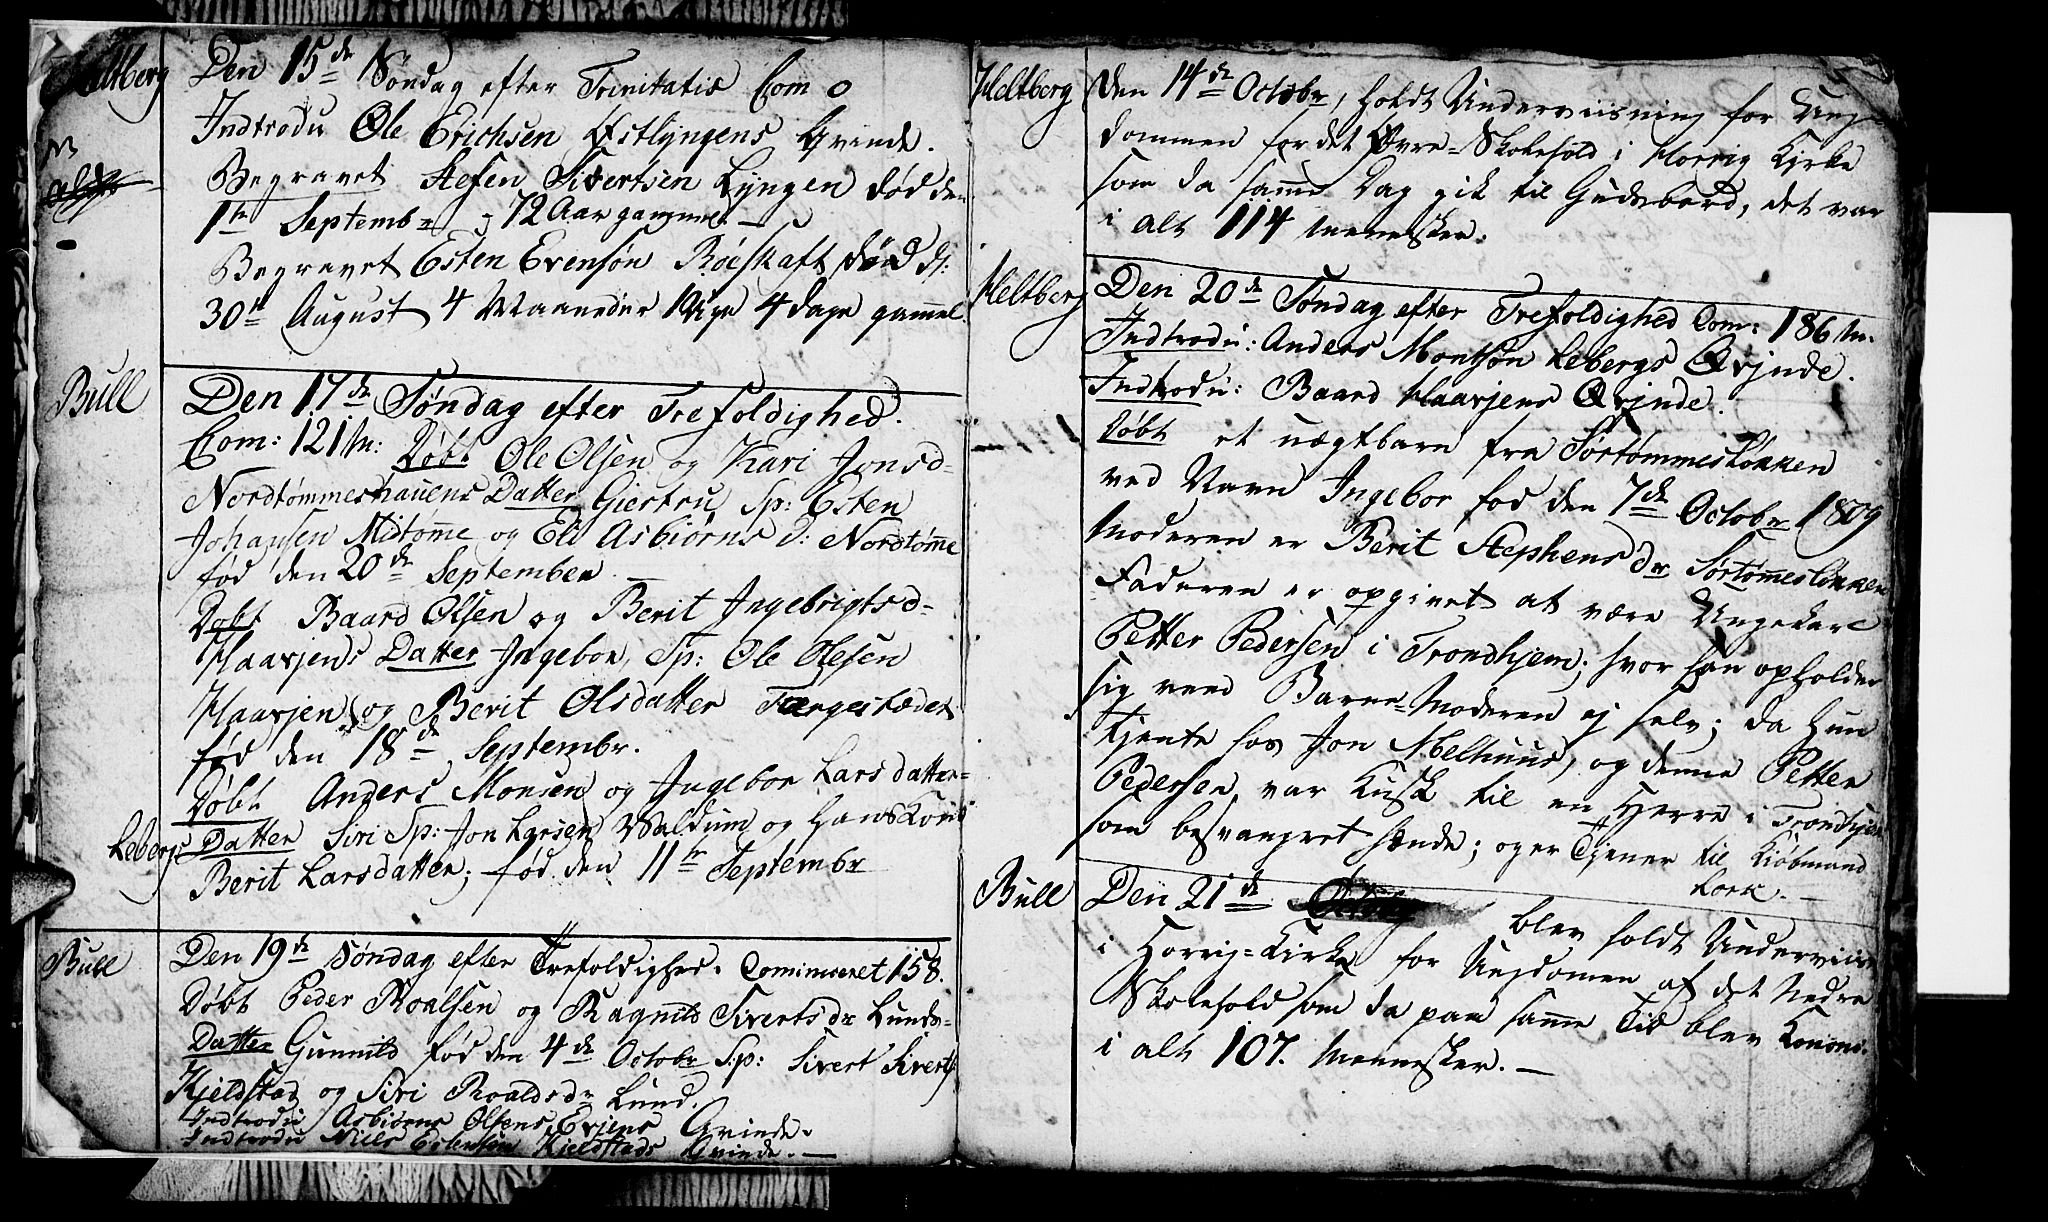 Heltberg
Den 15de Søndag efter Trinitatis Com 0
Indtrodu Ole Erichsen Østlyngens Qvinde.
Begravet Stefen Sivertsen Lyngen død den
1te Septembr 72 Aar gammel —
Begravet Esten Evensøn Røeskaft død d:
30te August 4 Maaneder 1 Uge 4 dage gammel.
Bull
Den 17de Søndag efter Trefoldighed.
Com: 121 M: Døbt Ole Olsen og Kari Jonsd-
Nordtømmeshauens Datter Giertru, Sp: Esten
Johansen Midtømme og Eli Asbiørns D: Nordtømme
fød den 20de September —
Døbt Baard Olsen og Berit Ingebrigtsd-
Haarjens Datter Ingebor, Sp: Ole Olesen
Haarjen og Berit Olsdatter Færgestædet
fød den 18de Septembr.
Døbt Anders Monsen og Ingebor Larsdatter-
Lebergs Datter Siri Sp: Jon Larsen Waldum og Hans Kone
Berit Larsdatter; fød den 11te Septembr
Bull
Den 19de Søndag efter Trefoldighed. Comimuseret 158.
Døbt Peder Roalsen og Ragnild Siverts dr Lunds-
Datter Gunnild fød den 4de Octobr Sp: Sivert Siverts:
Kjeldstad og Siri Roaldsdr Lund.
Indtrodu Asbiørns Olsens Evjens Qvinde.
Indtrodu Niels Estensen Kjeldstads Qvinde. —
Heltberg
Den 14de Octobr, holdt Underviisning for Ung-
dommen for det Øvre-Skolehold i Horrig Kirke
som da samme Dag gik til Gudsbord, det var
i alt 114 Mennesker.
Heltberg
Den 20de Søndag efter Trefoldighed Com: 186 M.
Indtrodu: Anders Montsøn Lebergs Qvjnde.
Indtrodu: Baard Haarjens Qvjnde.
Døbt et uægtbarn fra Sørtømmesløkken
ved Navn Ingebor fød den 7de Octobr 1809
Moderen er Berit Stephens dr Sørtømmesløkken
Faderen er opgivet at være Ungekarl
Petter Pedersen i Trondhjem, hvor han opholder
sig veed Barne-Moderen ej selv; da Hun
tjente hos Jon Melhuus, og denne Petter
Pedersen var Kusk til en Herre i Trondhjem
som besvangret hænde; og er Tjener til Kiøbmand
Lork. —
Bull
Den 21de blev holdt Underviis
i Horrig-Kirke for Ungdomen af det Nedre
Skolehold som da paa samme Tid blev Komuni.
i alt 107. Mennesker. —